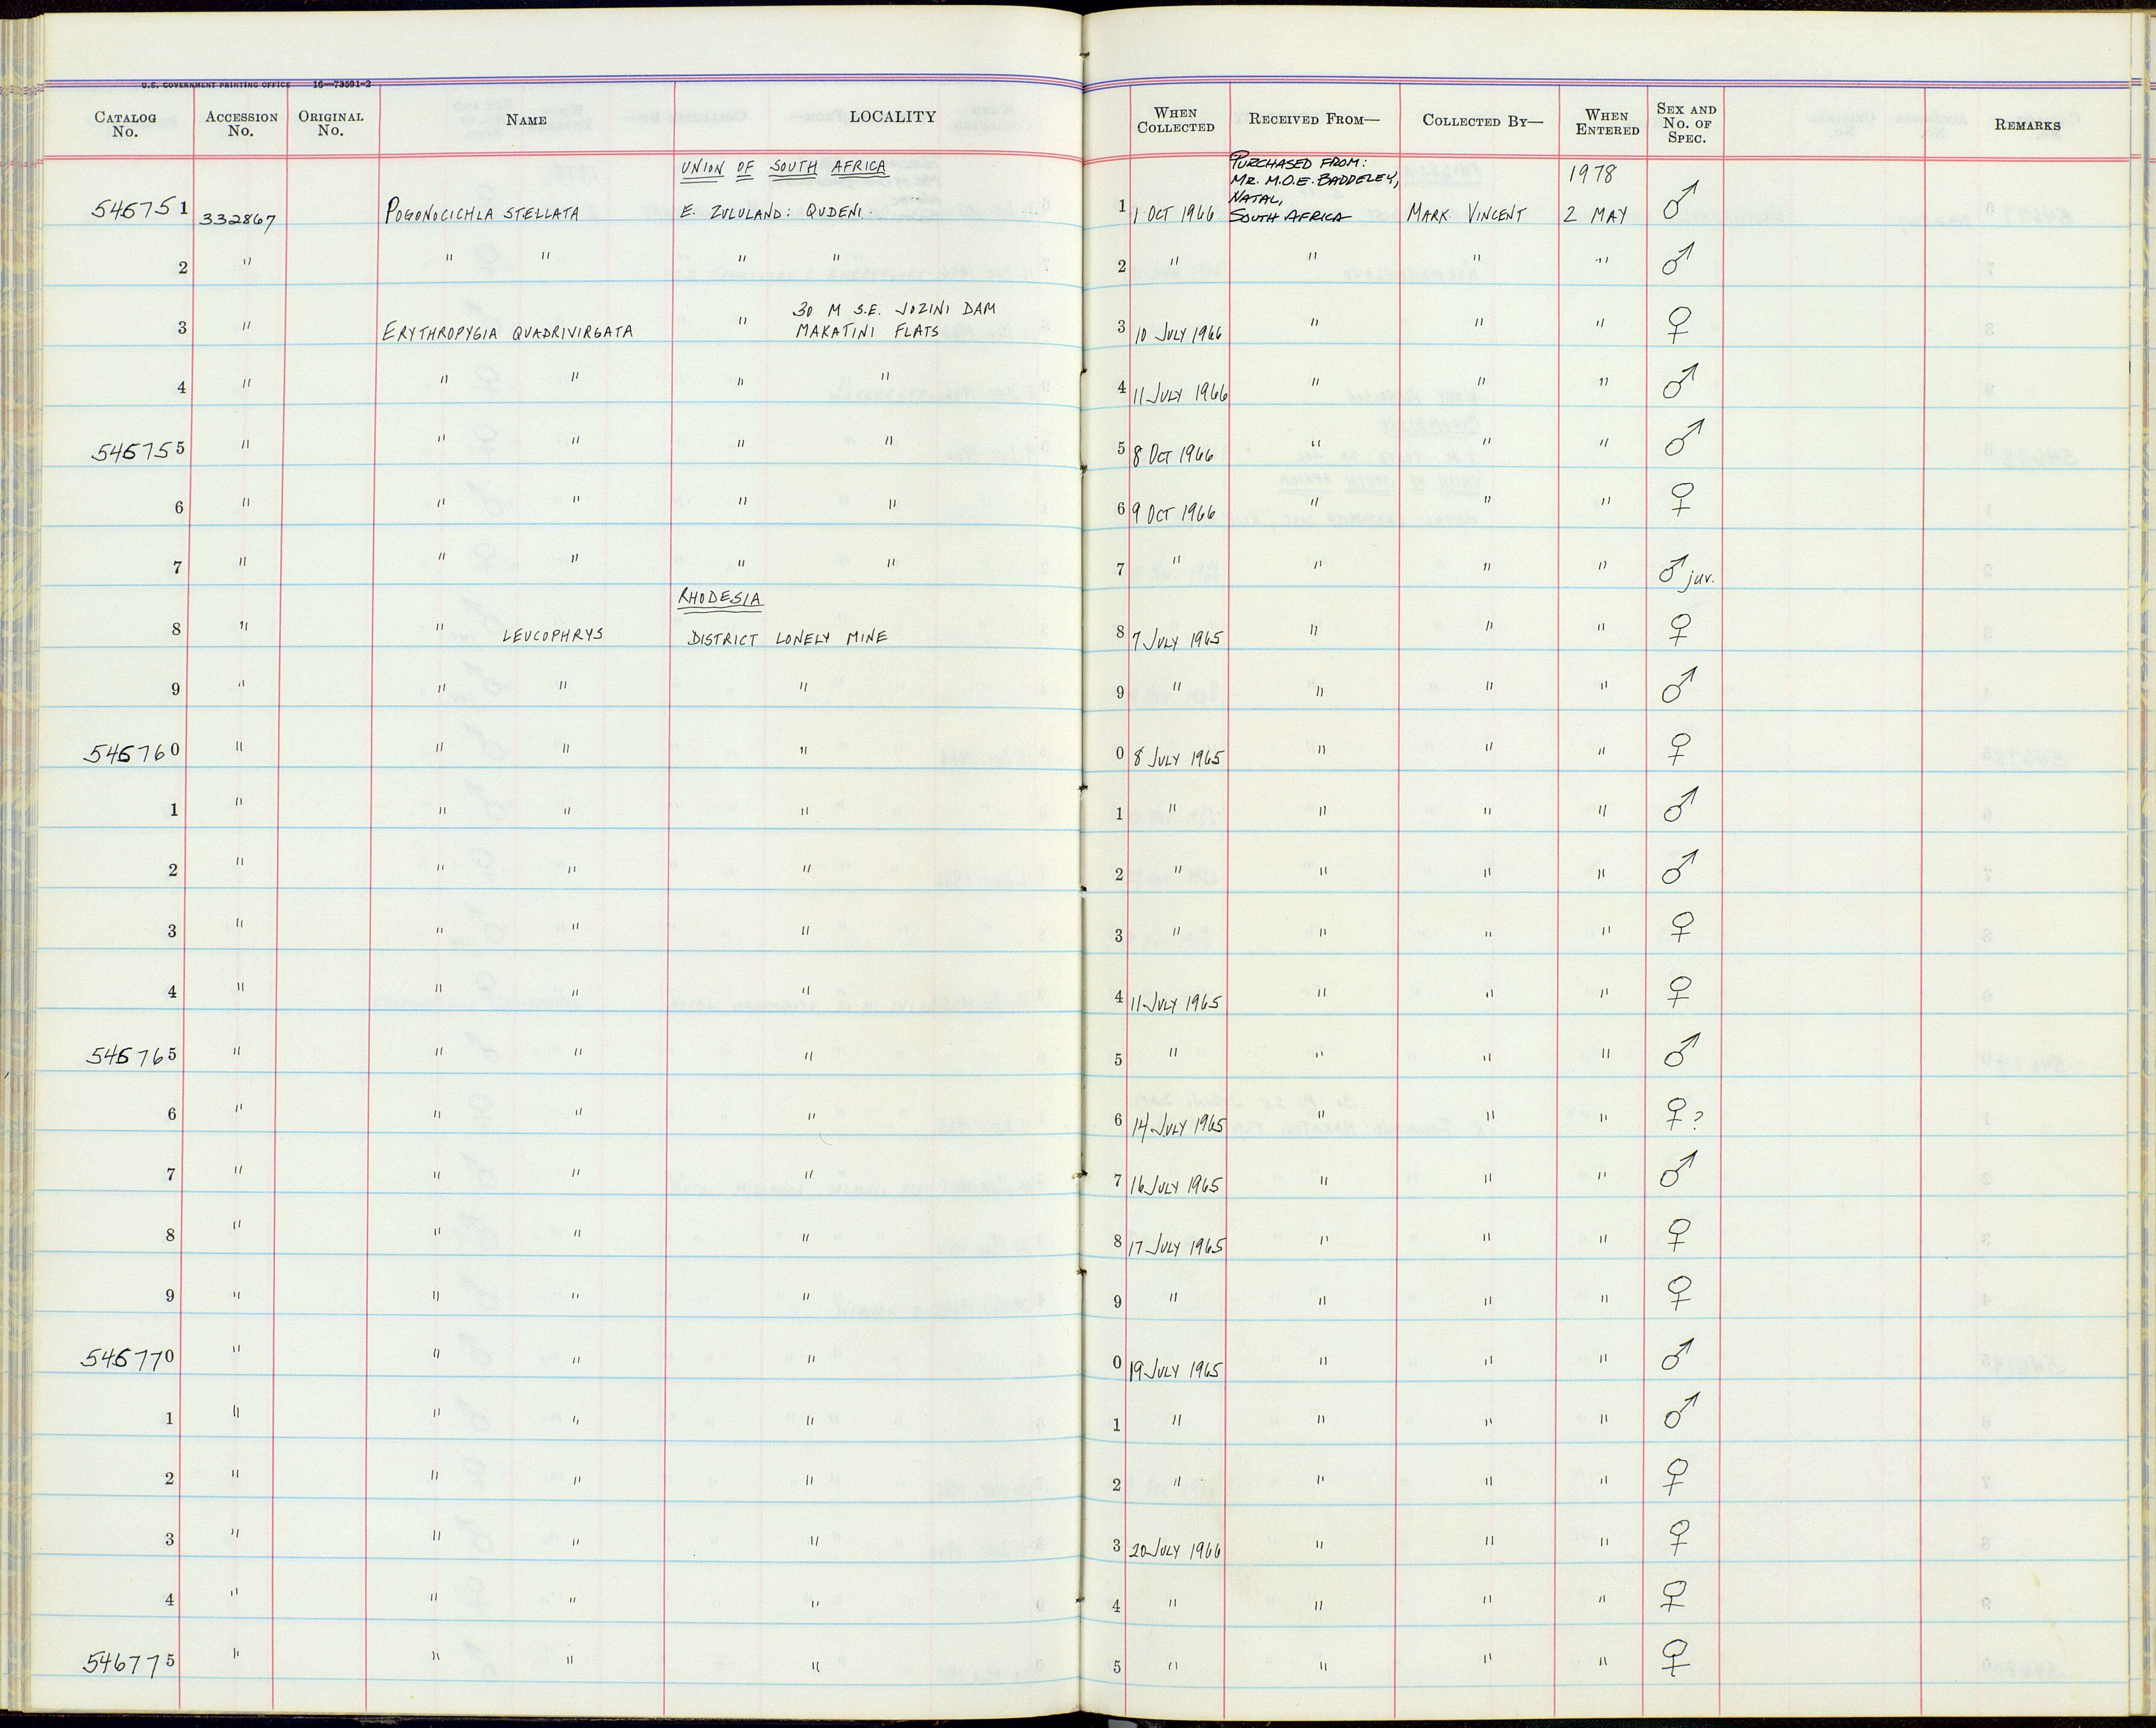 U.S. GOVERNMENT PRINTING OFFICE 16—73591-2
CATALOG No. ACCESSION No. ORIGINAL No. NAME LOCALITY WHEN COLLECTED RECEIVED FROM— COLLECTED BY— WHEN ENTERED SEX AND No. OF SPEC. REMARKS
UNION OF SOUTH AFRICA PURCHASED FROM: MR. M.O.E. BADDELEY, NATAL, 1978
546751 332867 POGONOCICHLA STELLATA E. ZULULAND: QUDENI 1 1 OCT 1966 SOUTH AFRICA MARK VINCENT 2 MAY ♂
2 " " " " " 2 " " " " ♂
30 M S.E. JOZINI DAM
3 " ERYTHROPYGIA QUADRIVIRGATA " MAKATINI FLATS 3 10 JULY 1966 " " " ♀
4 " " " " " 4 11 JULY 1966 " " " ♂
546755 " " " " " 5 8 OCT 1966 " " " ♂
6 " " " " " 6 9 OCT 1966 " " " ♀
7 " " " " " 7 " " " " ♂ juv.
RHODESIA
8 " " LEUCOPHRYS DISTRICT LONELY MINE 8 7 JULY 1965 " " " ♀
9 " " " " 9 " " " " ♂
546760 " " " " 0 8 JULY 1965 " " " ♀
1 " " " " 1 " " " " ♂
2 " " " " 2 " " " " ♂
3 " " " " 3 " " " " ♀
4 " " " " 4 11 JULY 1965 " " " ♀
546765 " " " " 5 " " " " ♂
6 " " " " 6 14 JULY 1965 " " " ♀?
7 " " " " 7 16 JULY 1965 " " " ♂
8 " " " " 8 17 JULY 1965 " " " ♀
9 " " " " 9 " " " " ♀
546770 " " " " 0 19 JULY 1965 " " " ♂
1 " " " " 1 " " " " ♂
2 " " " " 2 " " " " ♀
3 " " " " 3 20 JULY 1966 " " " ♀
4 " " " " 4 " " " " ♀
546775 " " " " 5 " " " " ♀